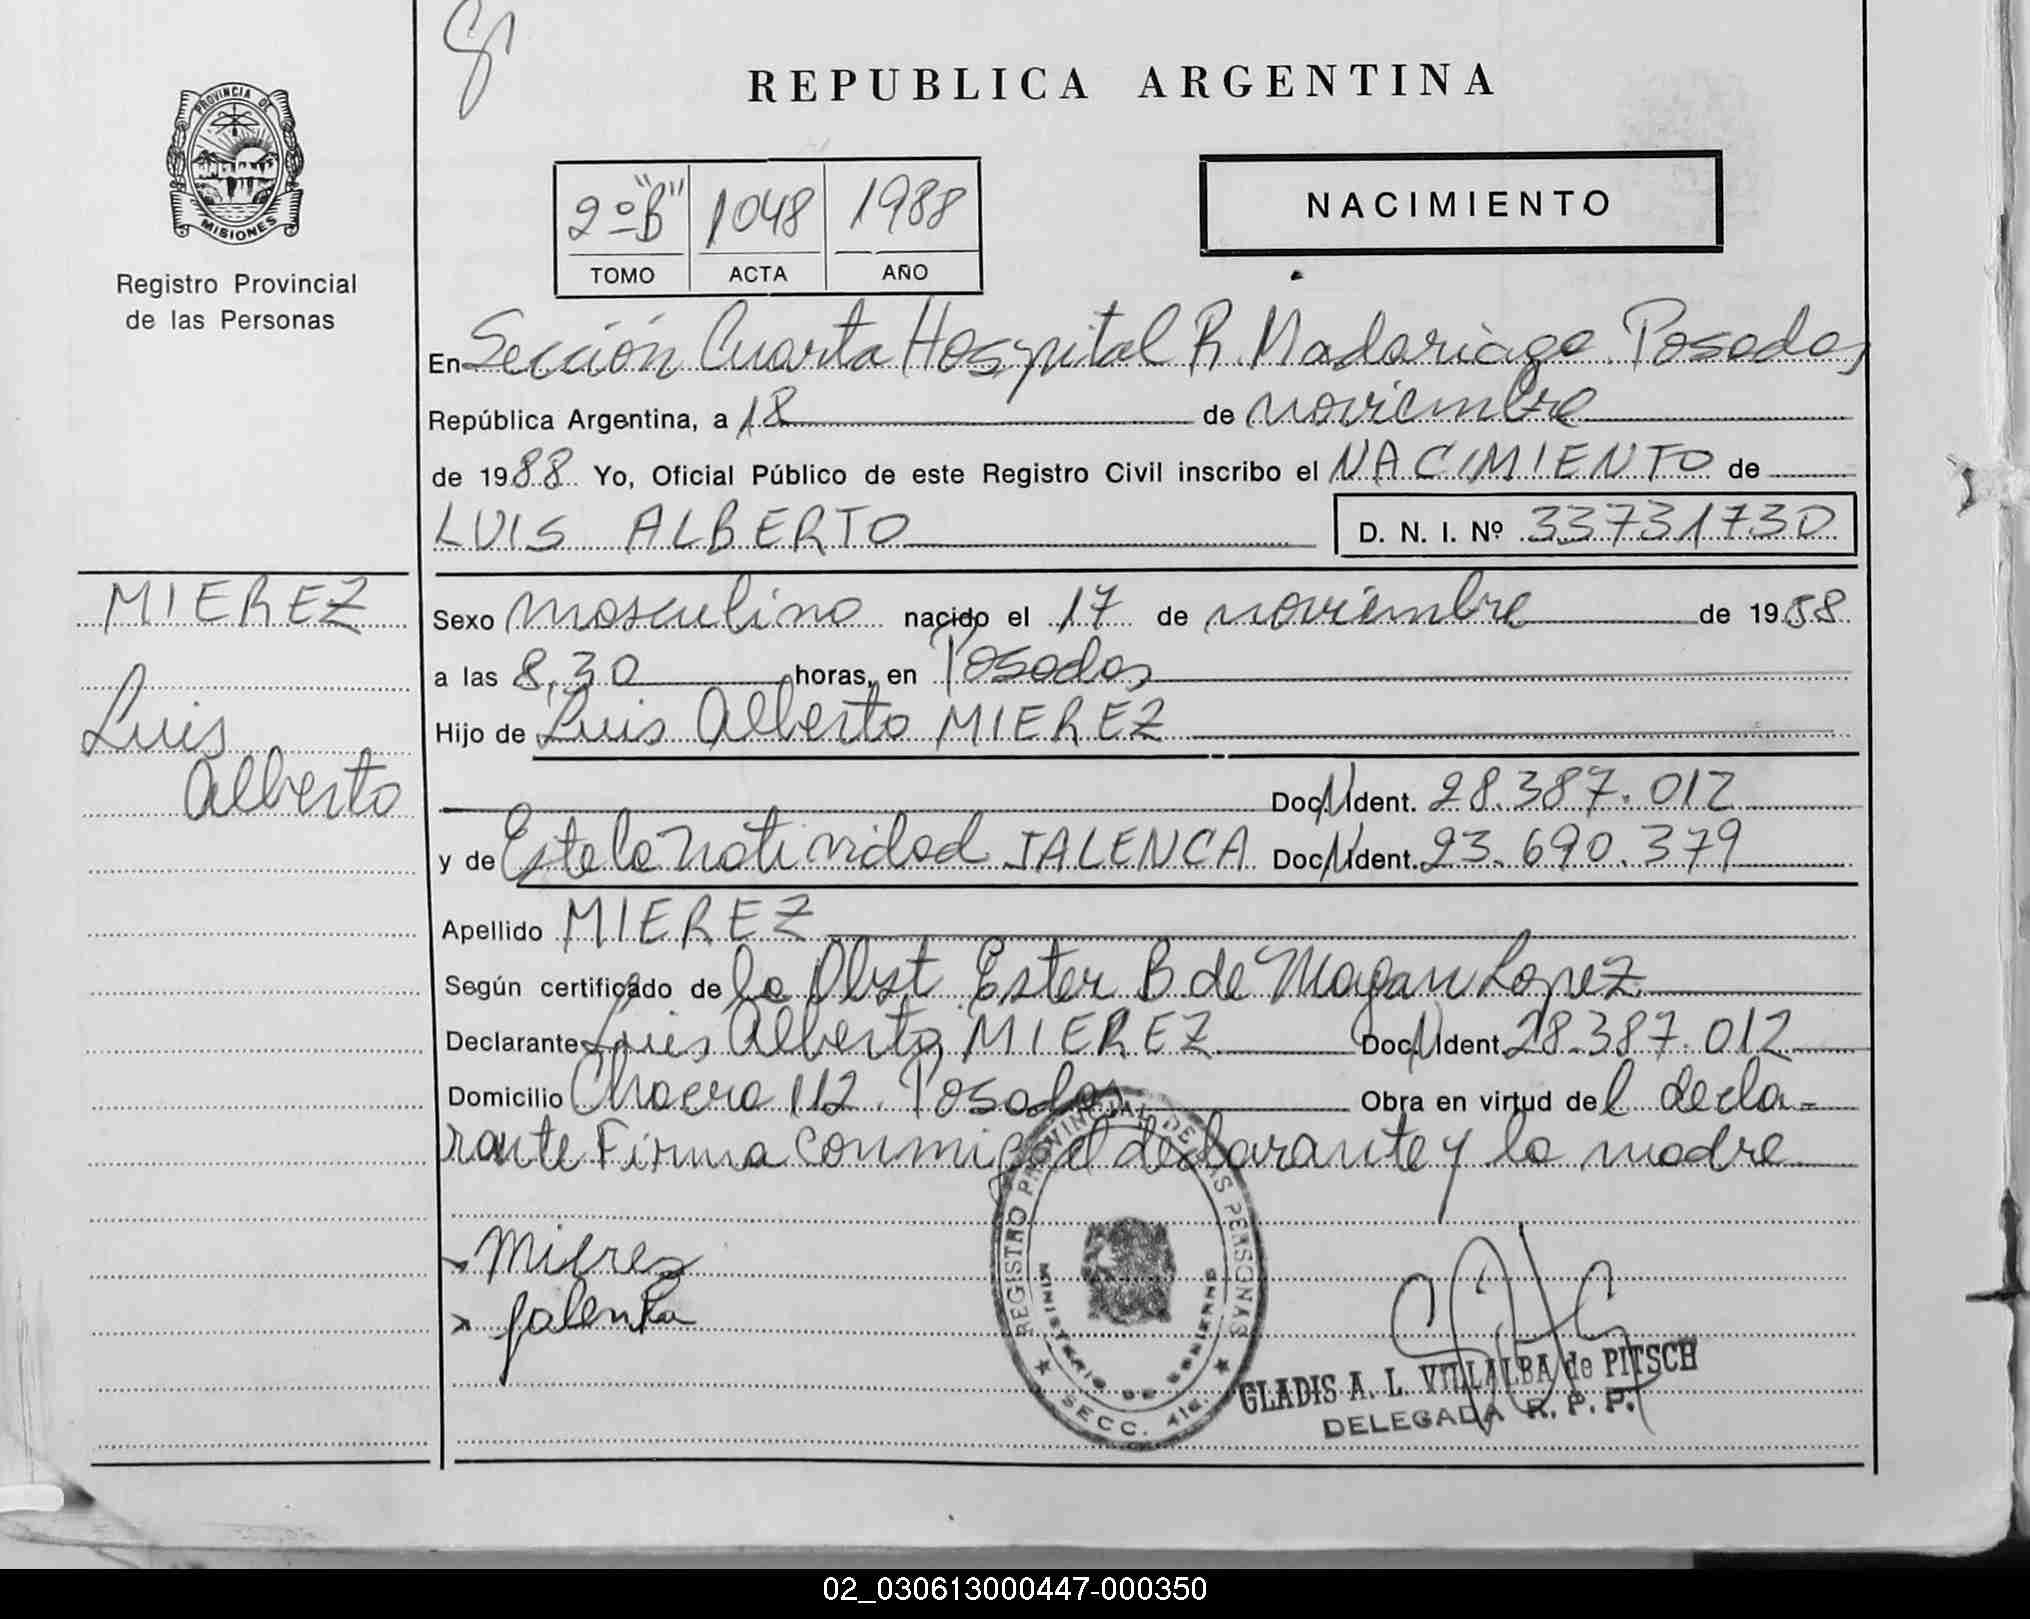 REPUBLICA ARGENTINA
PROVINCIA DE
MISIONES
Registro Provincial
de las Personas
2º "B" 1048 1988
TOMO ACTA AÑO
NACIMIENTO
En Sección Cuarta Hospital R. Madariaga Posadas
República Argentina, a 18 de noviembre
de 1988 Yo, Oficial Público de este Registro Civil inscribo el NACIMIENTO de
LUIS ALBERTO D. N. I. Nº 33731730
MIEREZ
Luis
Alberto
Sexo masculino nacido el 17 de noviembre de 1988
a las 8,30 horas, en Posadas
Hijo de Luis Alberto MIEREZ
Doc. N Ident. 28.387.012
y de Estela Natividad JALENCA Doc. N Ident. 23.690.379
Apellido MIEREZ
Según certificado de la Obst Ester B de Magan Lopez
Declarante Luis Alberto MIEREZ Doc. N Ident. 28.387.012
Domicilio Chacra 112. Posadas Obra en virtud del decla-
rante Firma conmigo el declarante y la madre
Mierez
Jalenka
REGISTRO PROVINCIAL DE LAS PERSONAS
MINISTERIO DE GOBIERNO
SECC. 4ta.
GLADIS A. L. VILLALBA de PITSCH
DELEGADA R. P. P.
02_030613000447-000350